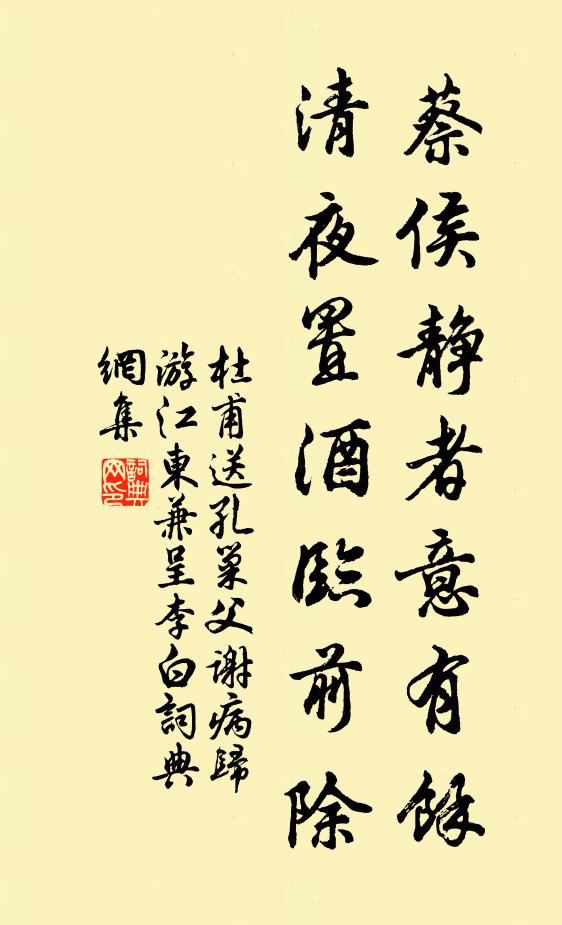 蔡侯静者意有餘
清夜置酒臨前除
杜甫送孔巢父謝病歸
游江東兼呈李白詞典
網集
詞典
网印